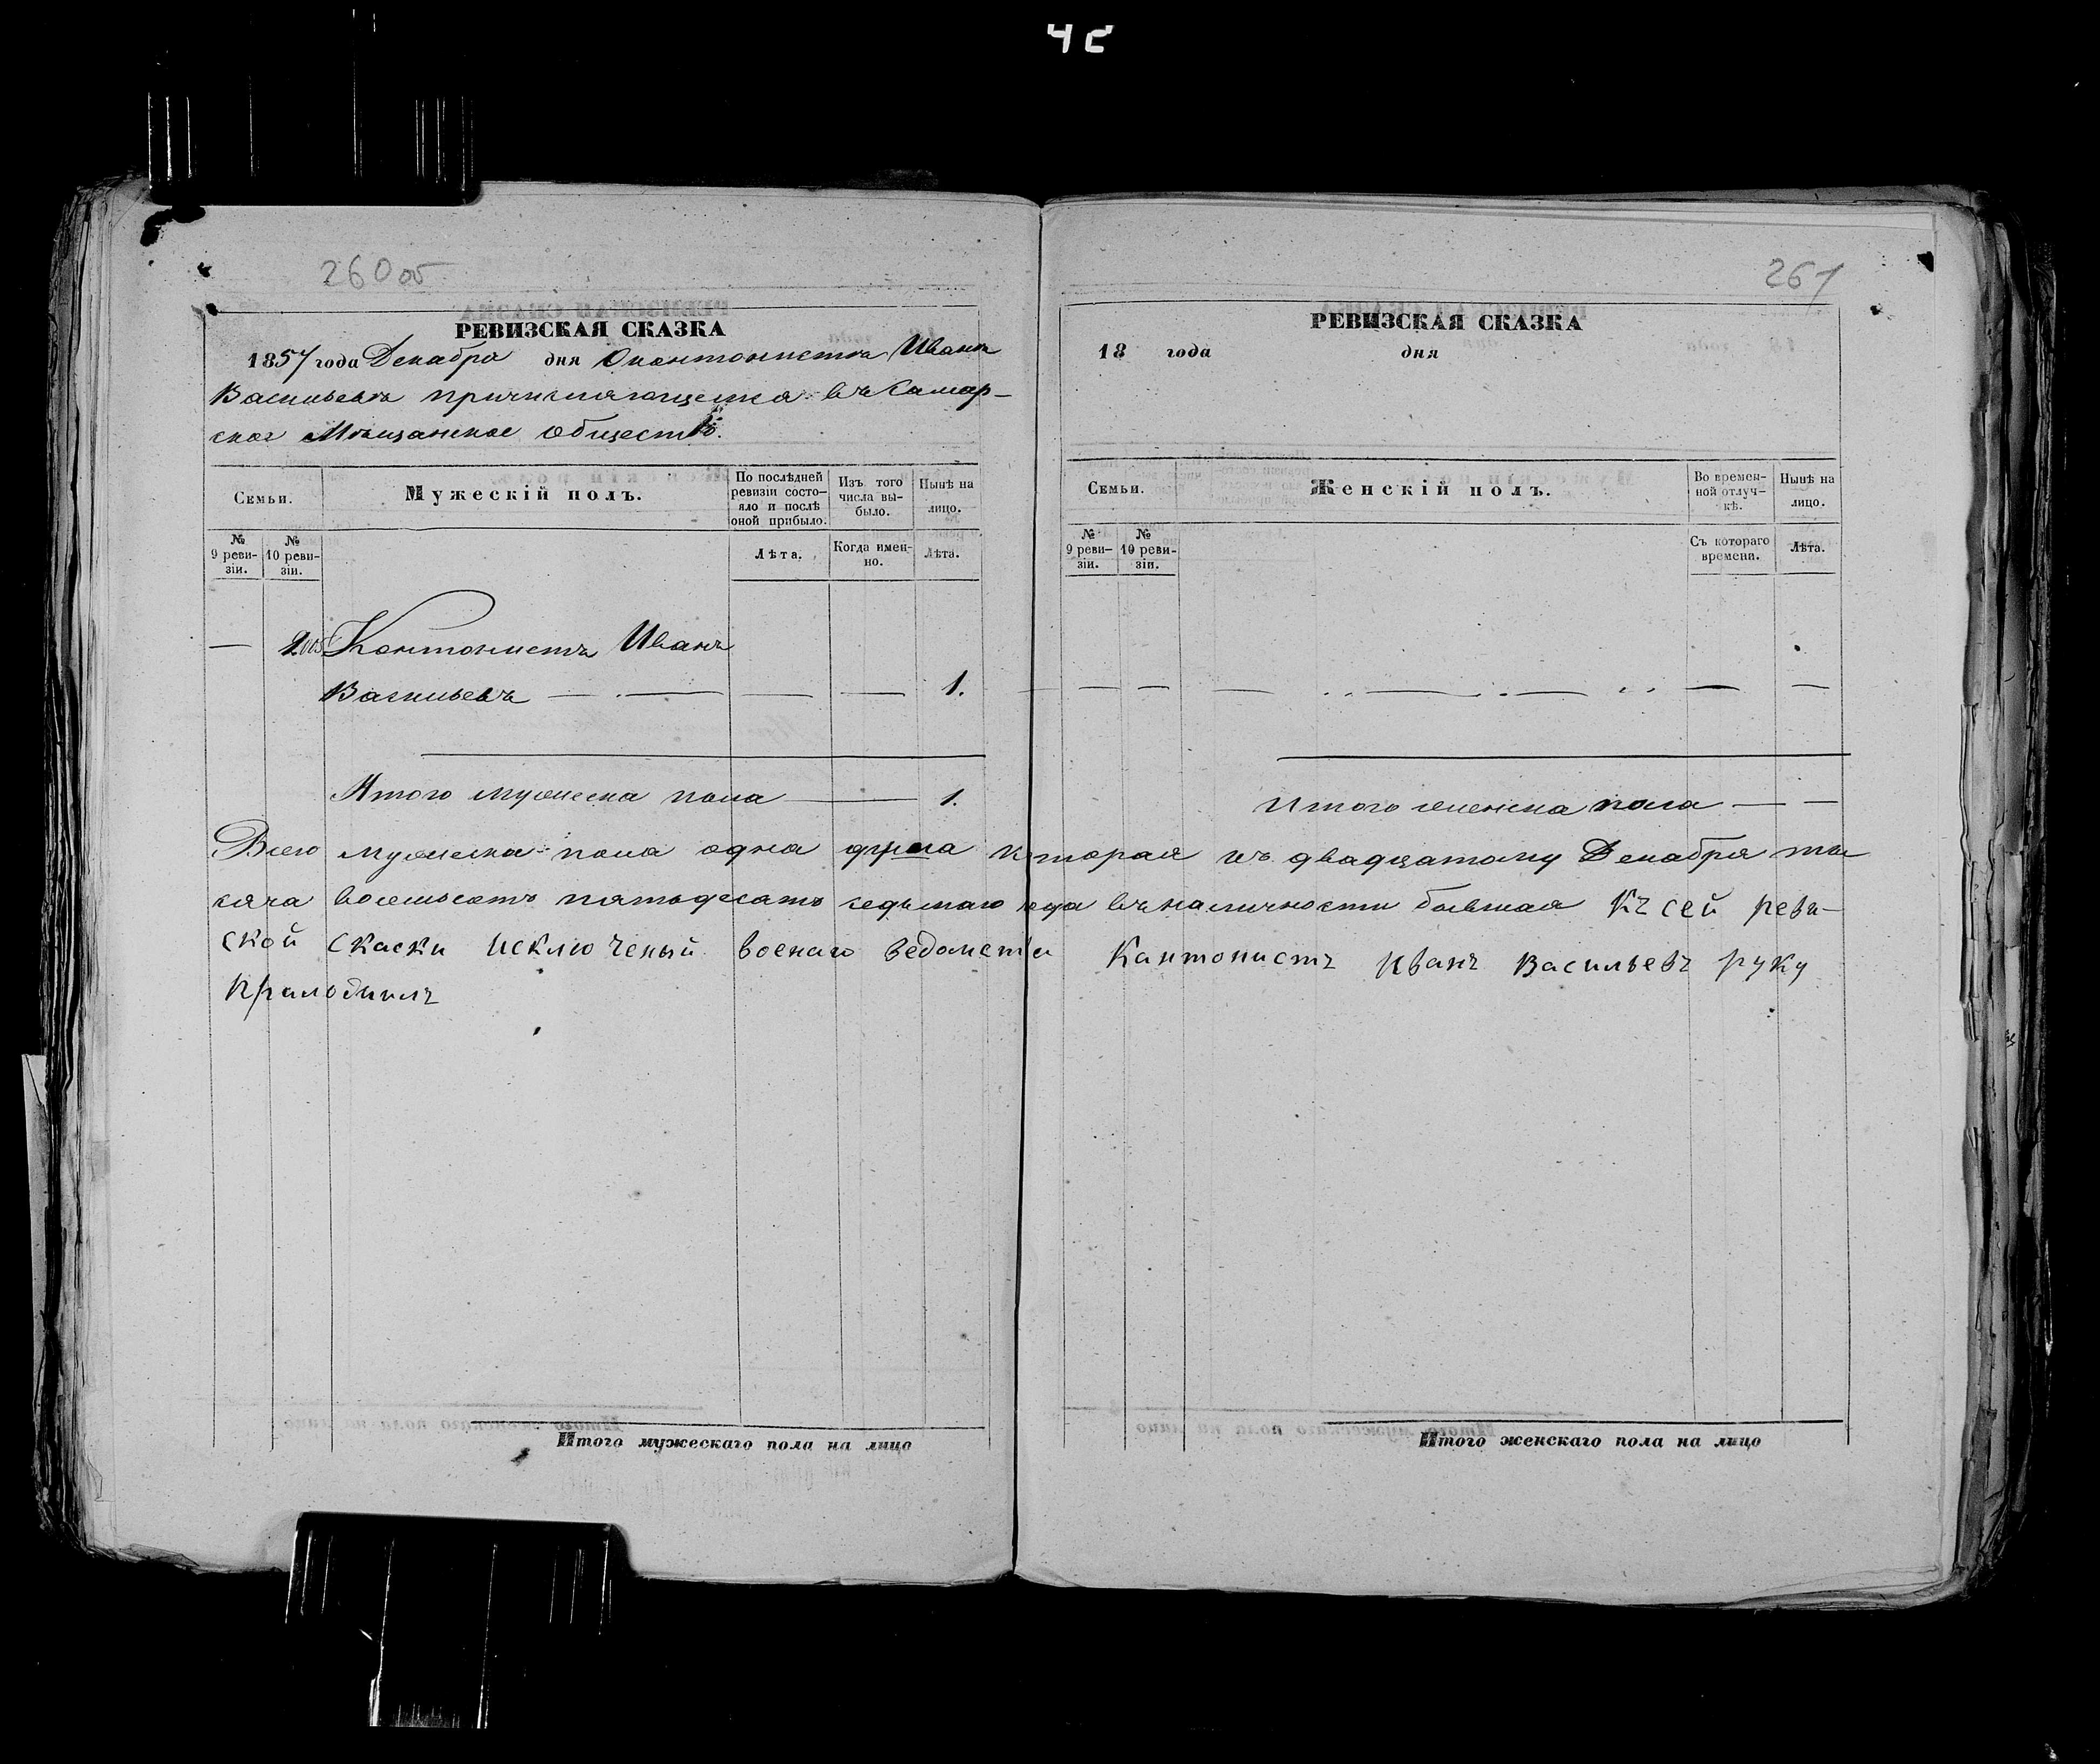 4с
260 об
РЕВИЗСКАЯ СКАЗКА
1857 года Декабря дня О кантонистѣ Иванѣ
Васильевѣ причисляющемся въ Самар-
ское Мѣщанское общество.
Семьи.
Мужескій полъ.
По послѣдней ревизіи состо-яло и послѣ оной прибыло.
Изъ того числа вы-было.
Нынѣ на лицо.
№ 9 реви-зіи.
№ 10 реви-зіи.
Лѣта.
Когда имен-но.
Лѣта.
— Кантонистъ Иванъ
Васильевъ — — — — 1.
Итого мужеска пола — 1.
267
РЕВИЗСКАЯ СКАЗКА
18 года дня
Семьи.
Женскій полъ.
Во времен-ной отлуч-кѣ.
Нынѣ на лицо.
№ 9 реви-зіи.
№ 10 реви-зіи.
Съ котораго времени.
Лѣта.
Итого женска пола — —
Всего мужеска пола одна душа которая къ двадцатому Декабря ты
сяча восемьсотъ пятьдесятъ седьмаго года въ наличности бывшая Къ сей реви-
ской скаски исключеный военаго ведомства Кантонистъ Иванъ Васильевъ руку
приложилъ
Итого мужескаго пола на лицо
Итого женскаго пола на лицо